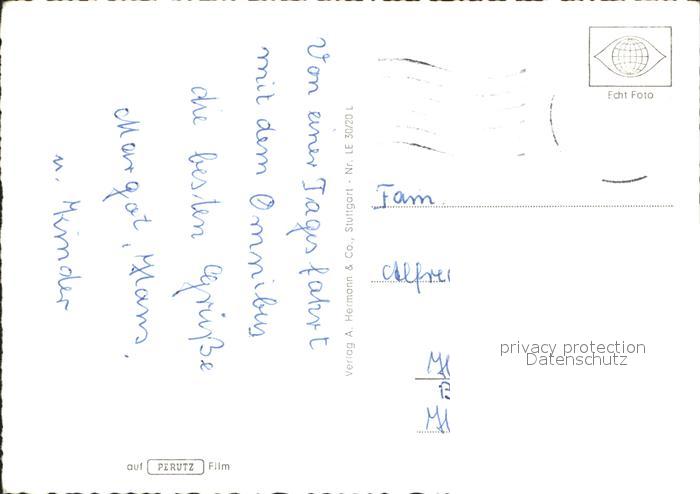 Von einer Tagesfahrt
mit dem Omnibus
die besten Grüße
Margot, Hans.
u. Kinder
Verlag A. Hermann & Co., Stuttgart - Nr. LE 30/20 L
Echt Foto
Fam.
Alfre
privacy protection
Datenschutz
auf PERUTZ Film